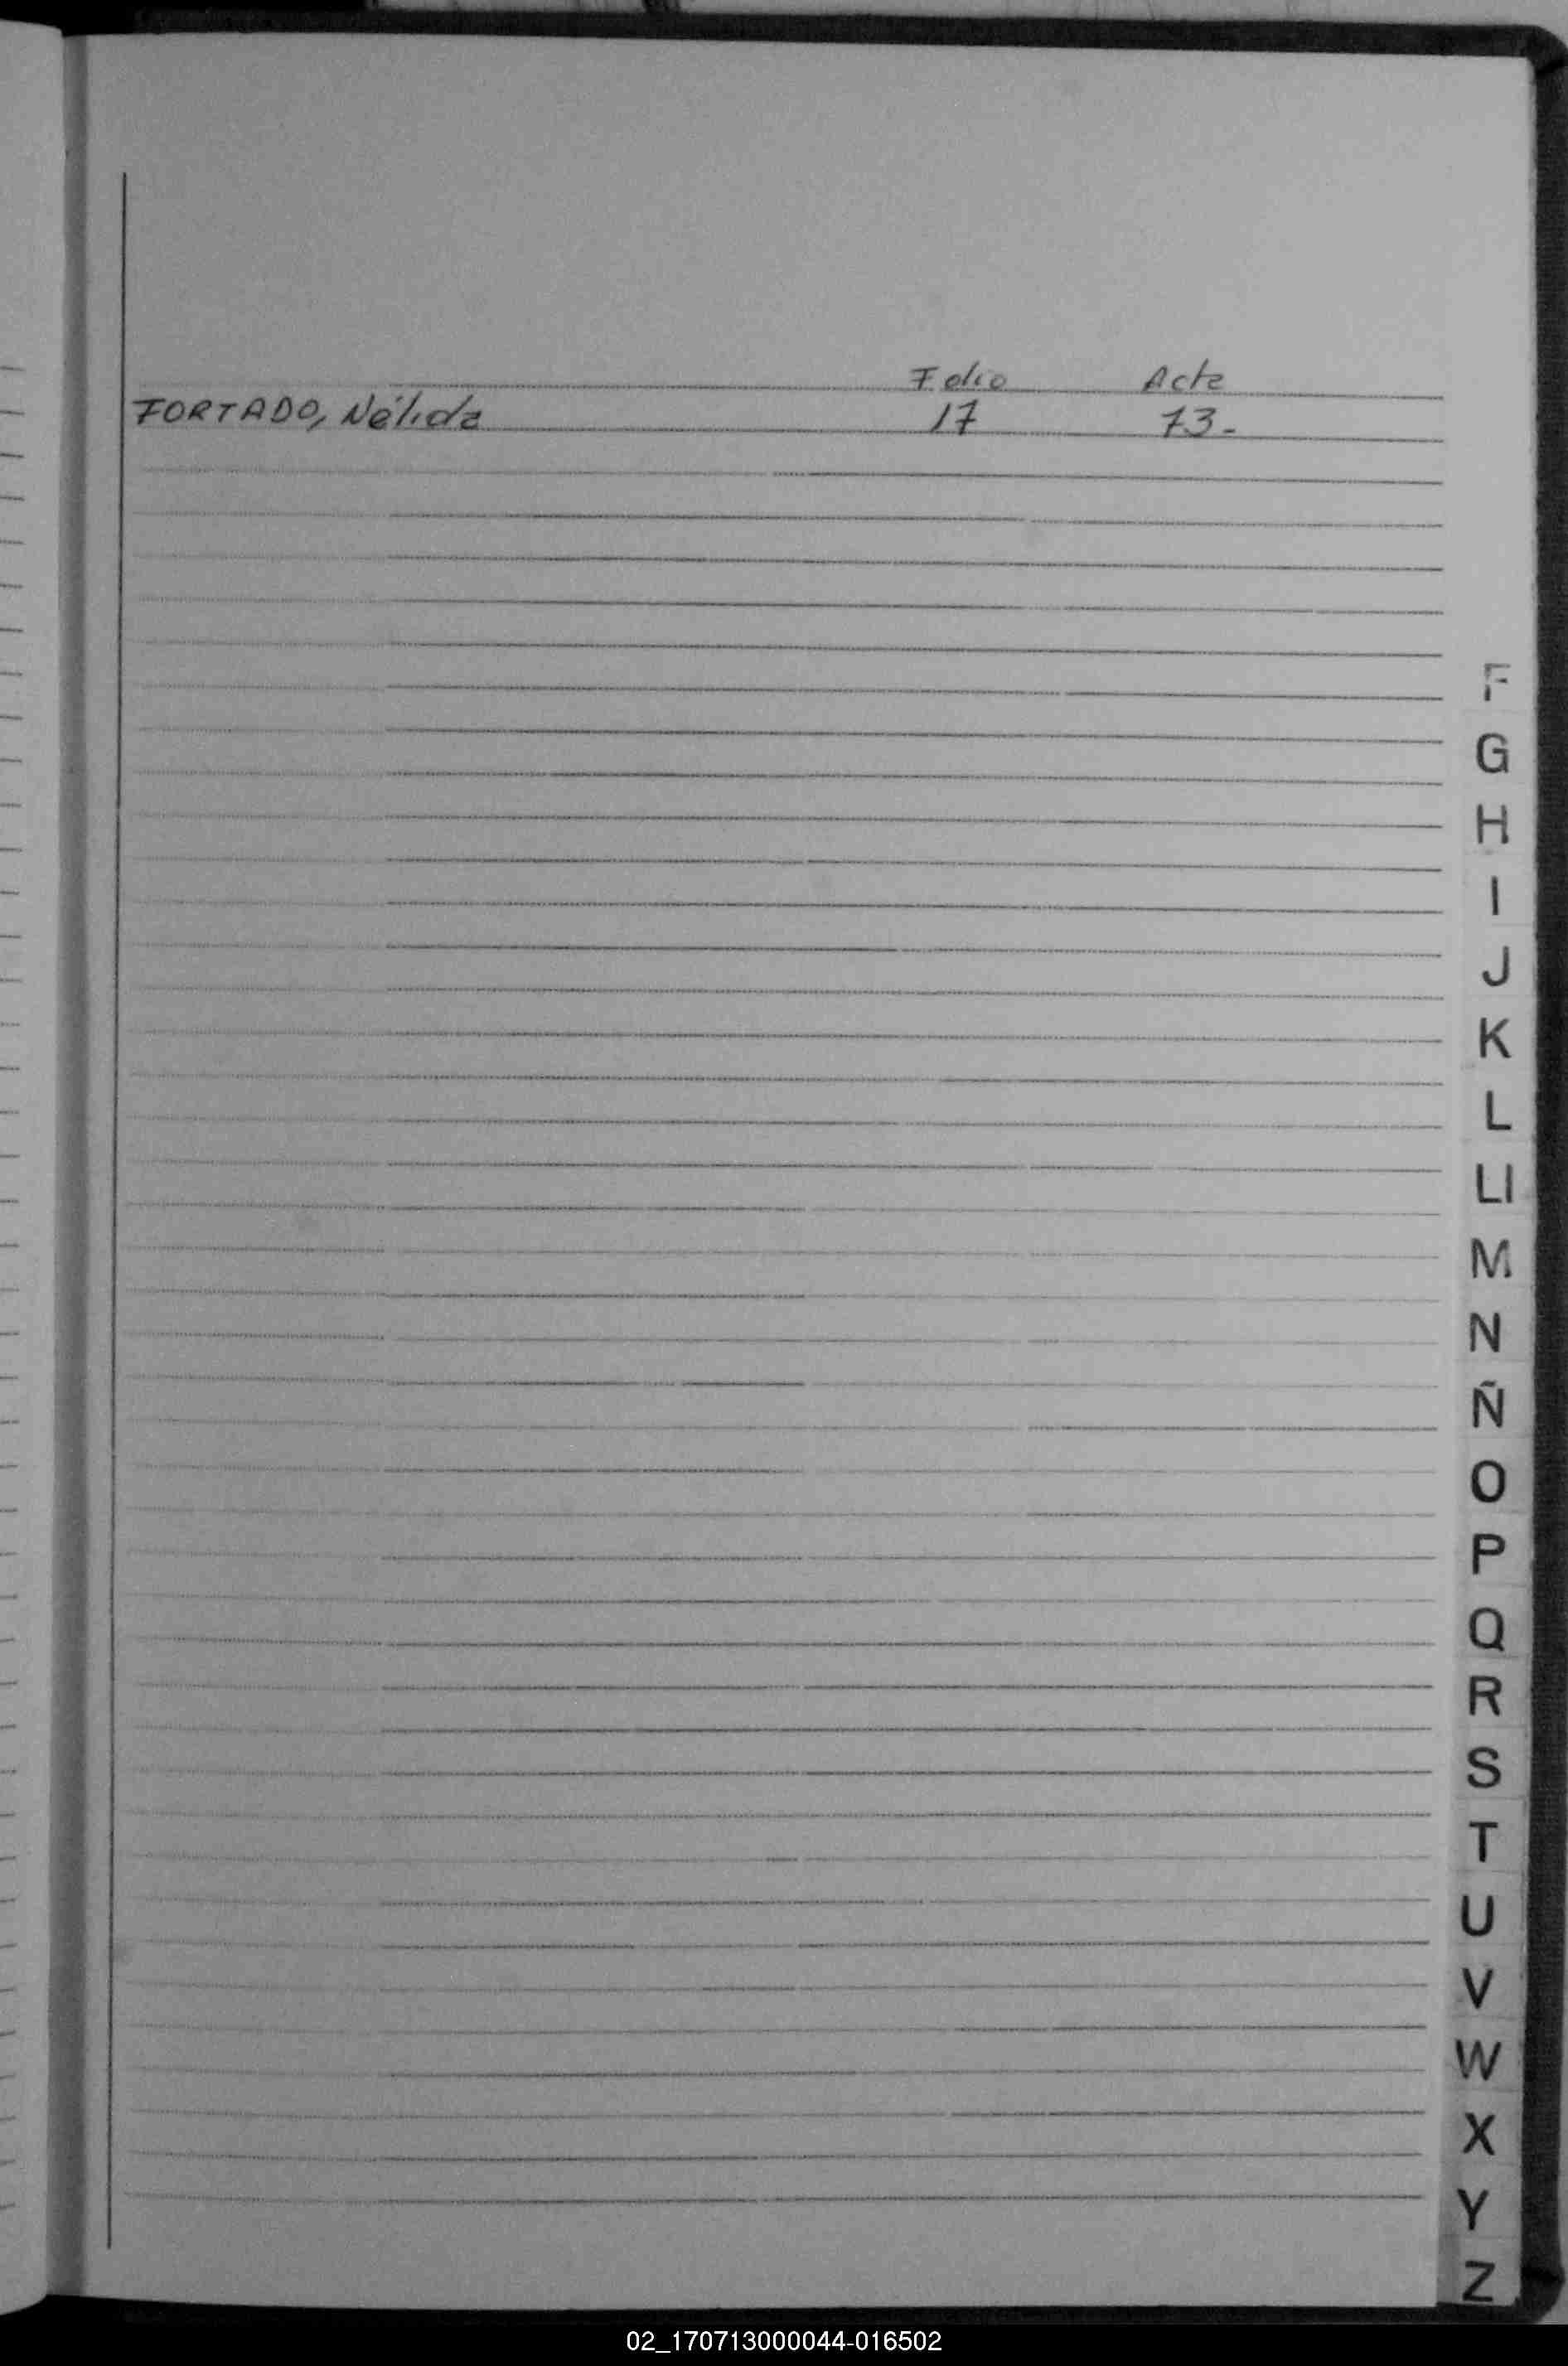 Folio Acta
FORTADO, Nélida 17 73.-
F
G
H
I
J
K
L
Ll
M
N
Ñ
O
P
Q
R
S
T
U
V
W
X
Y
Z
02_170713000044-016502